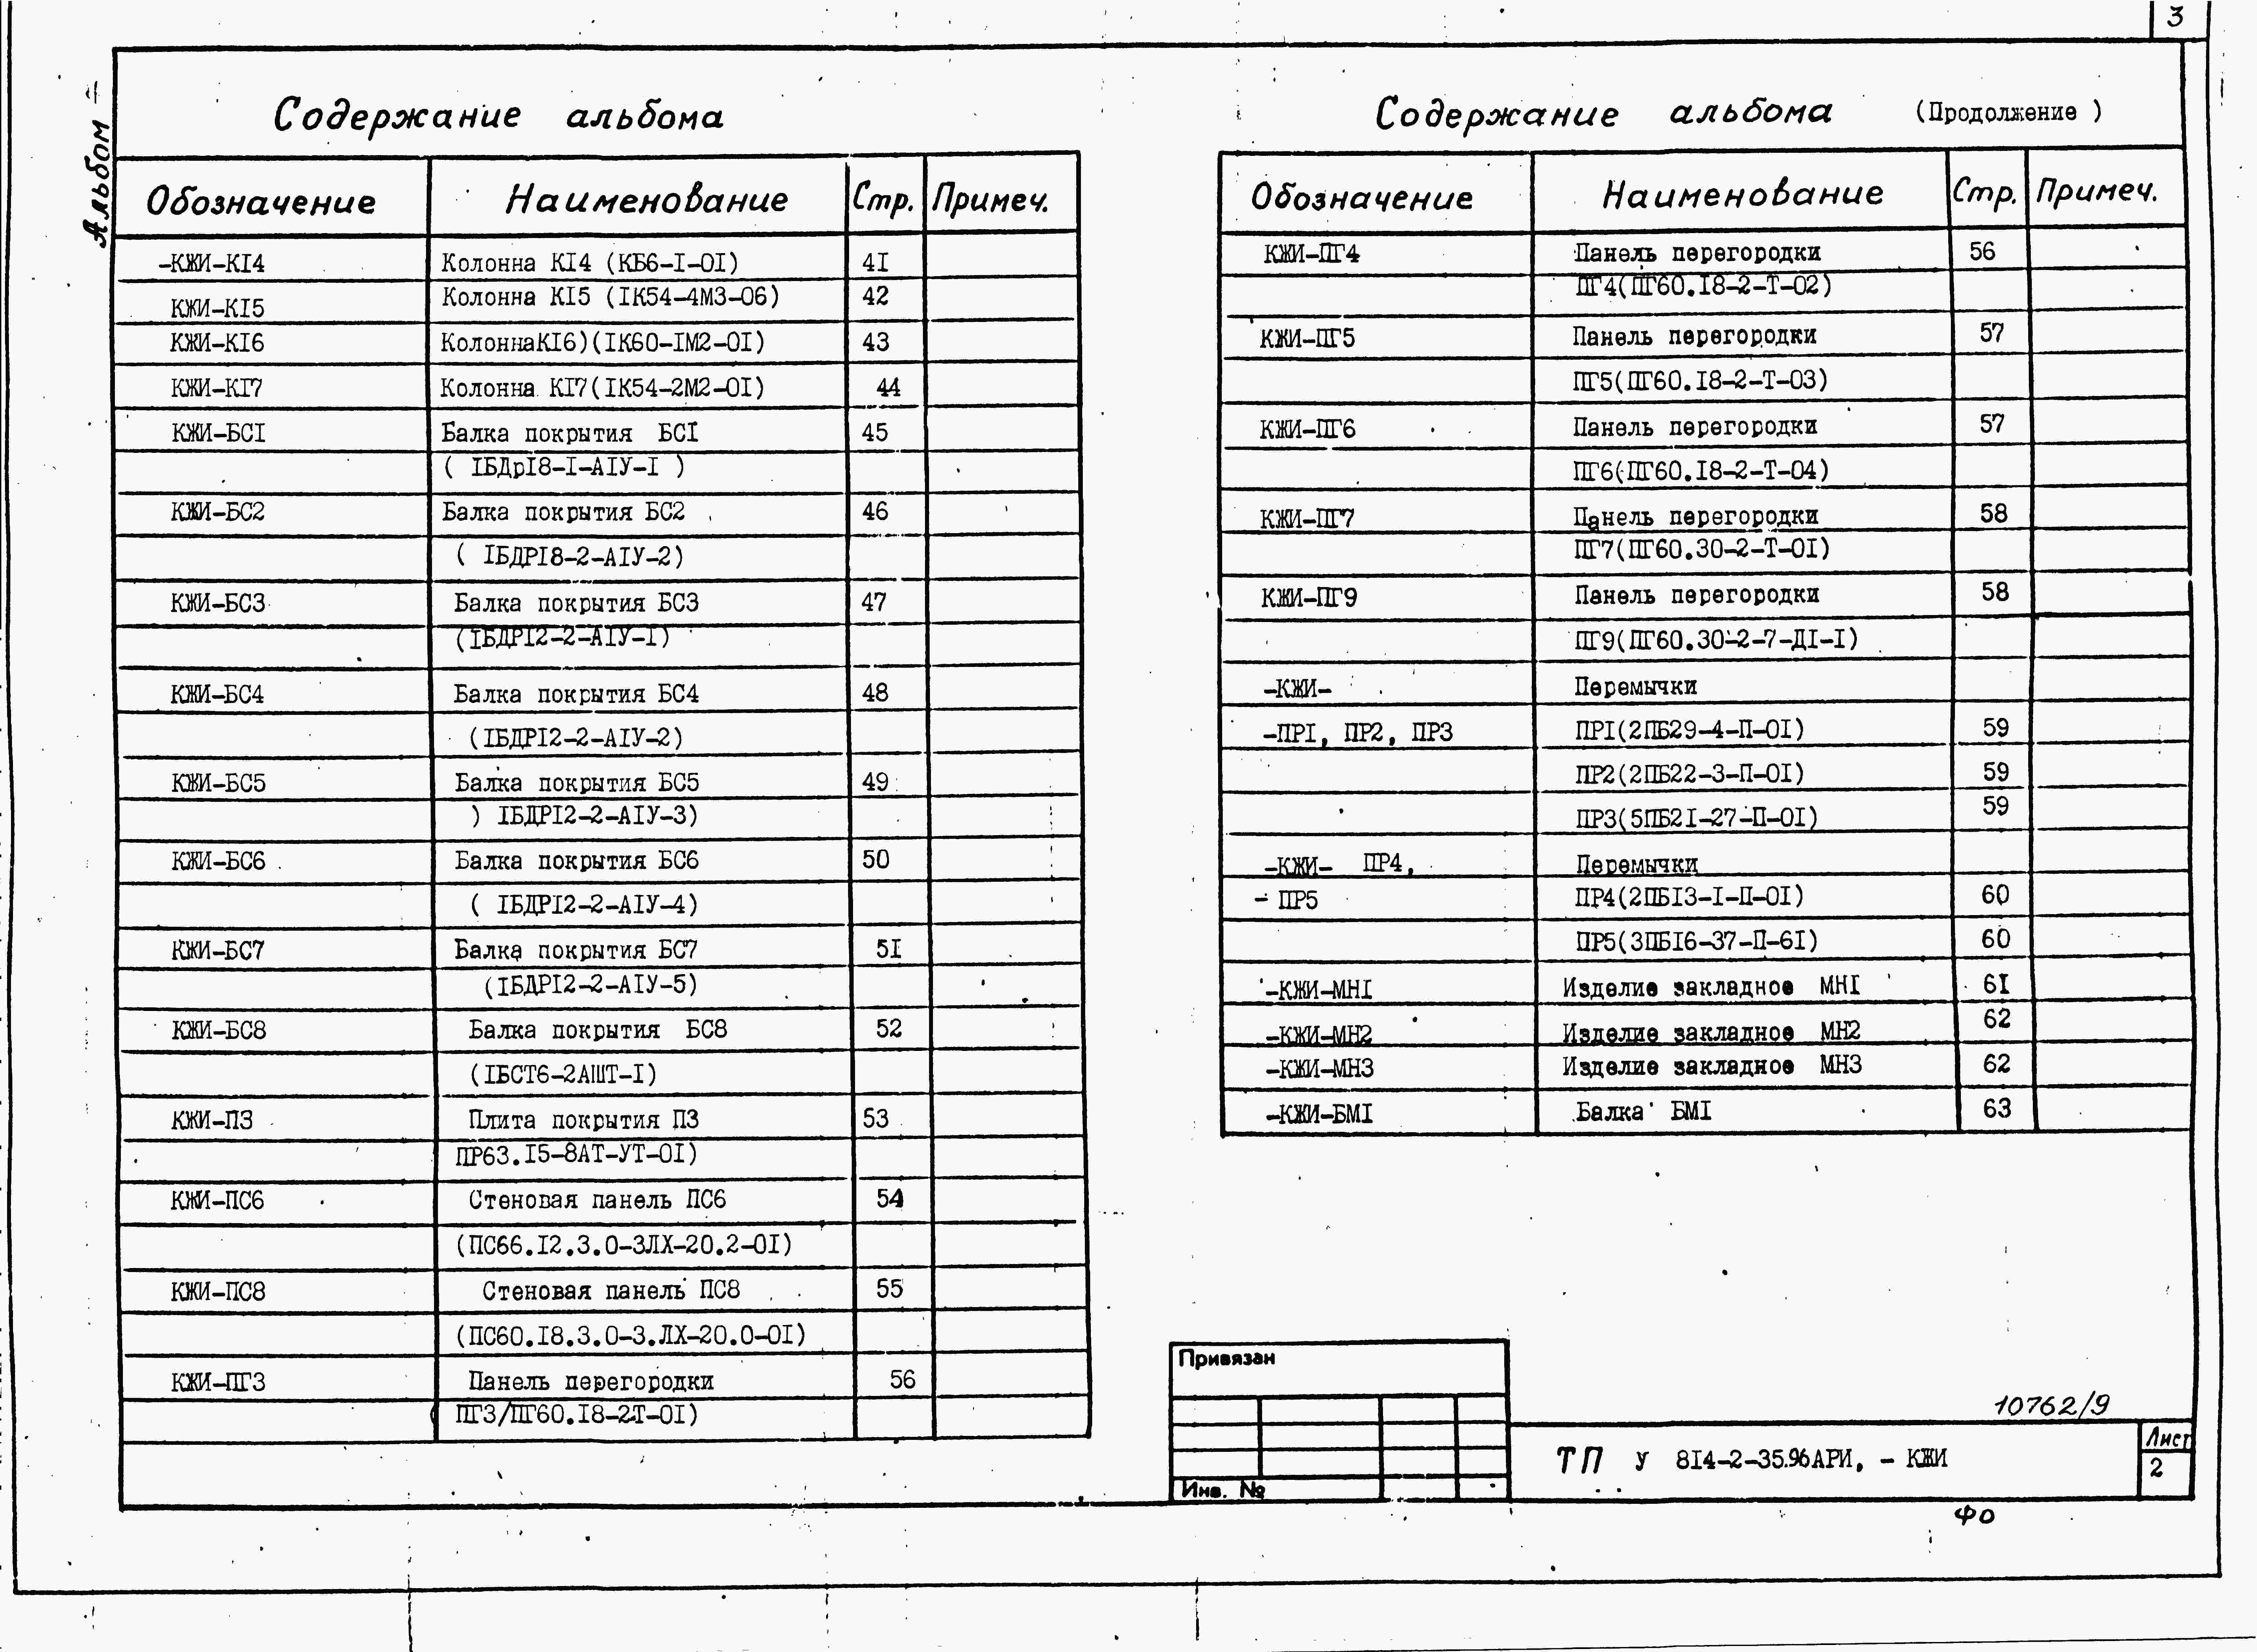 3
Альбом
Содержание альбома
Обозначение Наименование Стр. Примеч.
-КЖИ-КI4 Колонна КI4 (КБ6-I-ОI) 4I
КЖИ-КI5 Колонна КI5 (IК54-4М3-06) 42
КЖИ-КI6 КолоннаКI6)(IК60-IМ2-ОI) 43
КЖИ-КI7 Колонна КI7(IК54-2М2-ОI) 44
КЖИ-БСI Балка покрытия БСI 45
( IБДрI8-I-АIУ-I )
КЖИ-БС2 Балка покрытия БС2 46
( IБДРI8-2-АIУ-2)
КЖИ-БС3 Балка покрытия БС3 47
(IБДРI2-2-АIУ-I)
КЖИ-БС4 Балка покрытия БС4 48
(IБДРI2-2-АIУ-2)
КЖИ-БС5 Балка покрытия БС5 49
) IБДРI2-2-АIУ-3)
КЖИ-БС6 Балка покрытия БС6 50
( IБДРI2-2-АIУ-4)
КЖИ-БС7 Балка покрытия БС7 5I
(IБДРI2-2-АIУ-5)
КЖИ-БС8 Балка покрытия БС8 52
(IБСТ6-2АШТ-I)
КЖИ-П3 Плита покрытия П3 53
ПР63.I5-8АТ-УТ-ОI)
КЖИ-ПС6 Стеновая панель ПС6 54
(ПС66.I2.3.0-3ЛХ-20.2-ОI)
КЖИ-ПС8 Стеновая панель ПС8 55
(ПС60.I8.3.0-3.ЛХ-20.0-ОI)
КЖИ-ПГ3 Панель перегородки 56
( ПГ3/ПГ60.I8-2Т-ОI)
Содержание альбома (Продолжение )
Обозначение Наименование Стр. Примеч.
КЖИ-ПГ4 Панель перегородки 56
ПГ4(ПГ60.I8-2-Т-02)
КЖИ-ПГ5 Панель перегородки 57
ПГ5(ПГ60.I8-2-Т-03)
КЖИ-ПГ6 Панель перегородки 57
ПГ6(ПГ60.I8-2-Т-04)
КЖИ-ПГ7 Панель перегородки 58
ПГ7(ПГ60.30-2-Т-ОI)
КЖИ-ПГ9 Панель перегородки 58
ПГ9(ПГ60.30-2-7-ДI-I)
-КЖИ- Перемычки
-ПРI, ПР2, ПР3 ПРI(2ПБ29-4-П-ОI) 59
ПР2(2ПБ22-3-П-ОI) 59
ПР3(5ПБ2I-27-П-ОI) 59
-КЖИ- ПР4, Перемычки
- ПР5 ПР4(2ПБI3-I-П-ОI) 60
ПР5(3ПБI6-37-П-6I) 60
-КЖИ-МНI Изделие закладное МНI 6I
-КЖИ-МН2 Изделие закладное МН2 62
-КЖИ-МН3 Изделие закладное МН3 62
-КЖИ-БМI Балка БМI 63
Привязан
Инв. №
10762/9
ТП У 8I4-2-35.96АРИ, - КЖИ
Лист
2
ФО